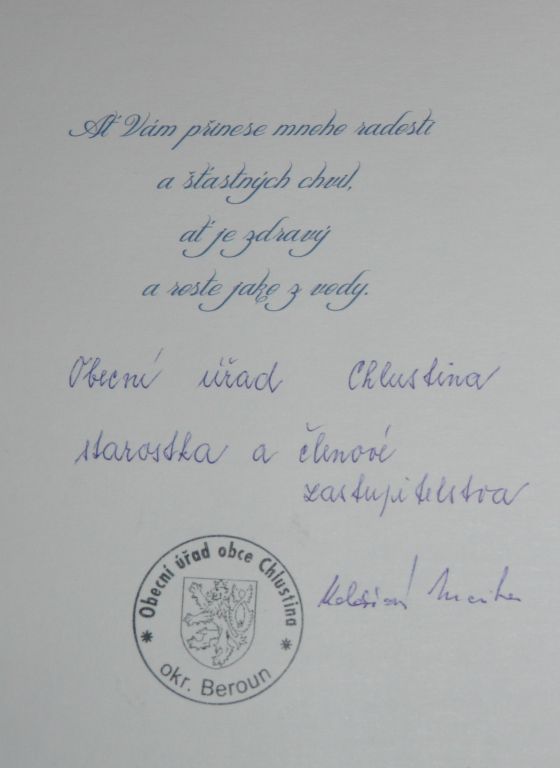 Ať Vám přinese mnoho radosti
a šťastných chvil,
ať je zdravý
a roste jako z vody.
Obecní úřad Chlustina
starostka a členové
zastupitelstva
* Obecní úřad obce Chlustina *
okr. Beroun